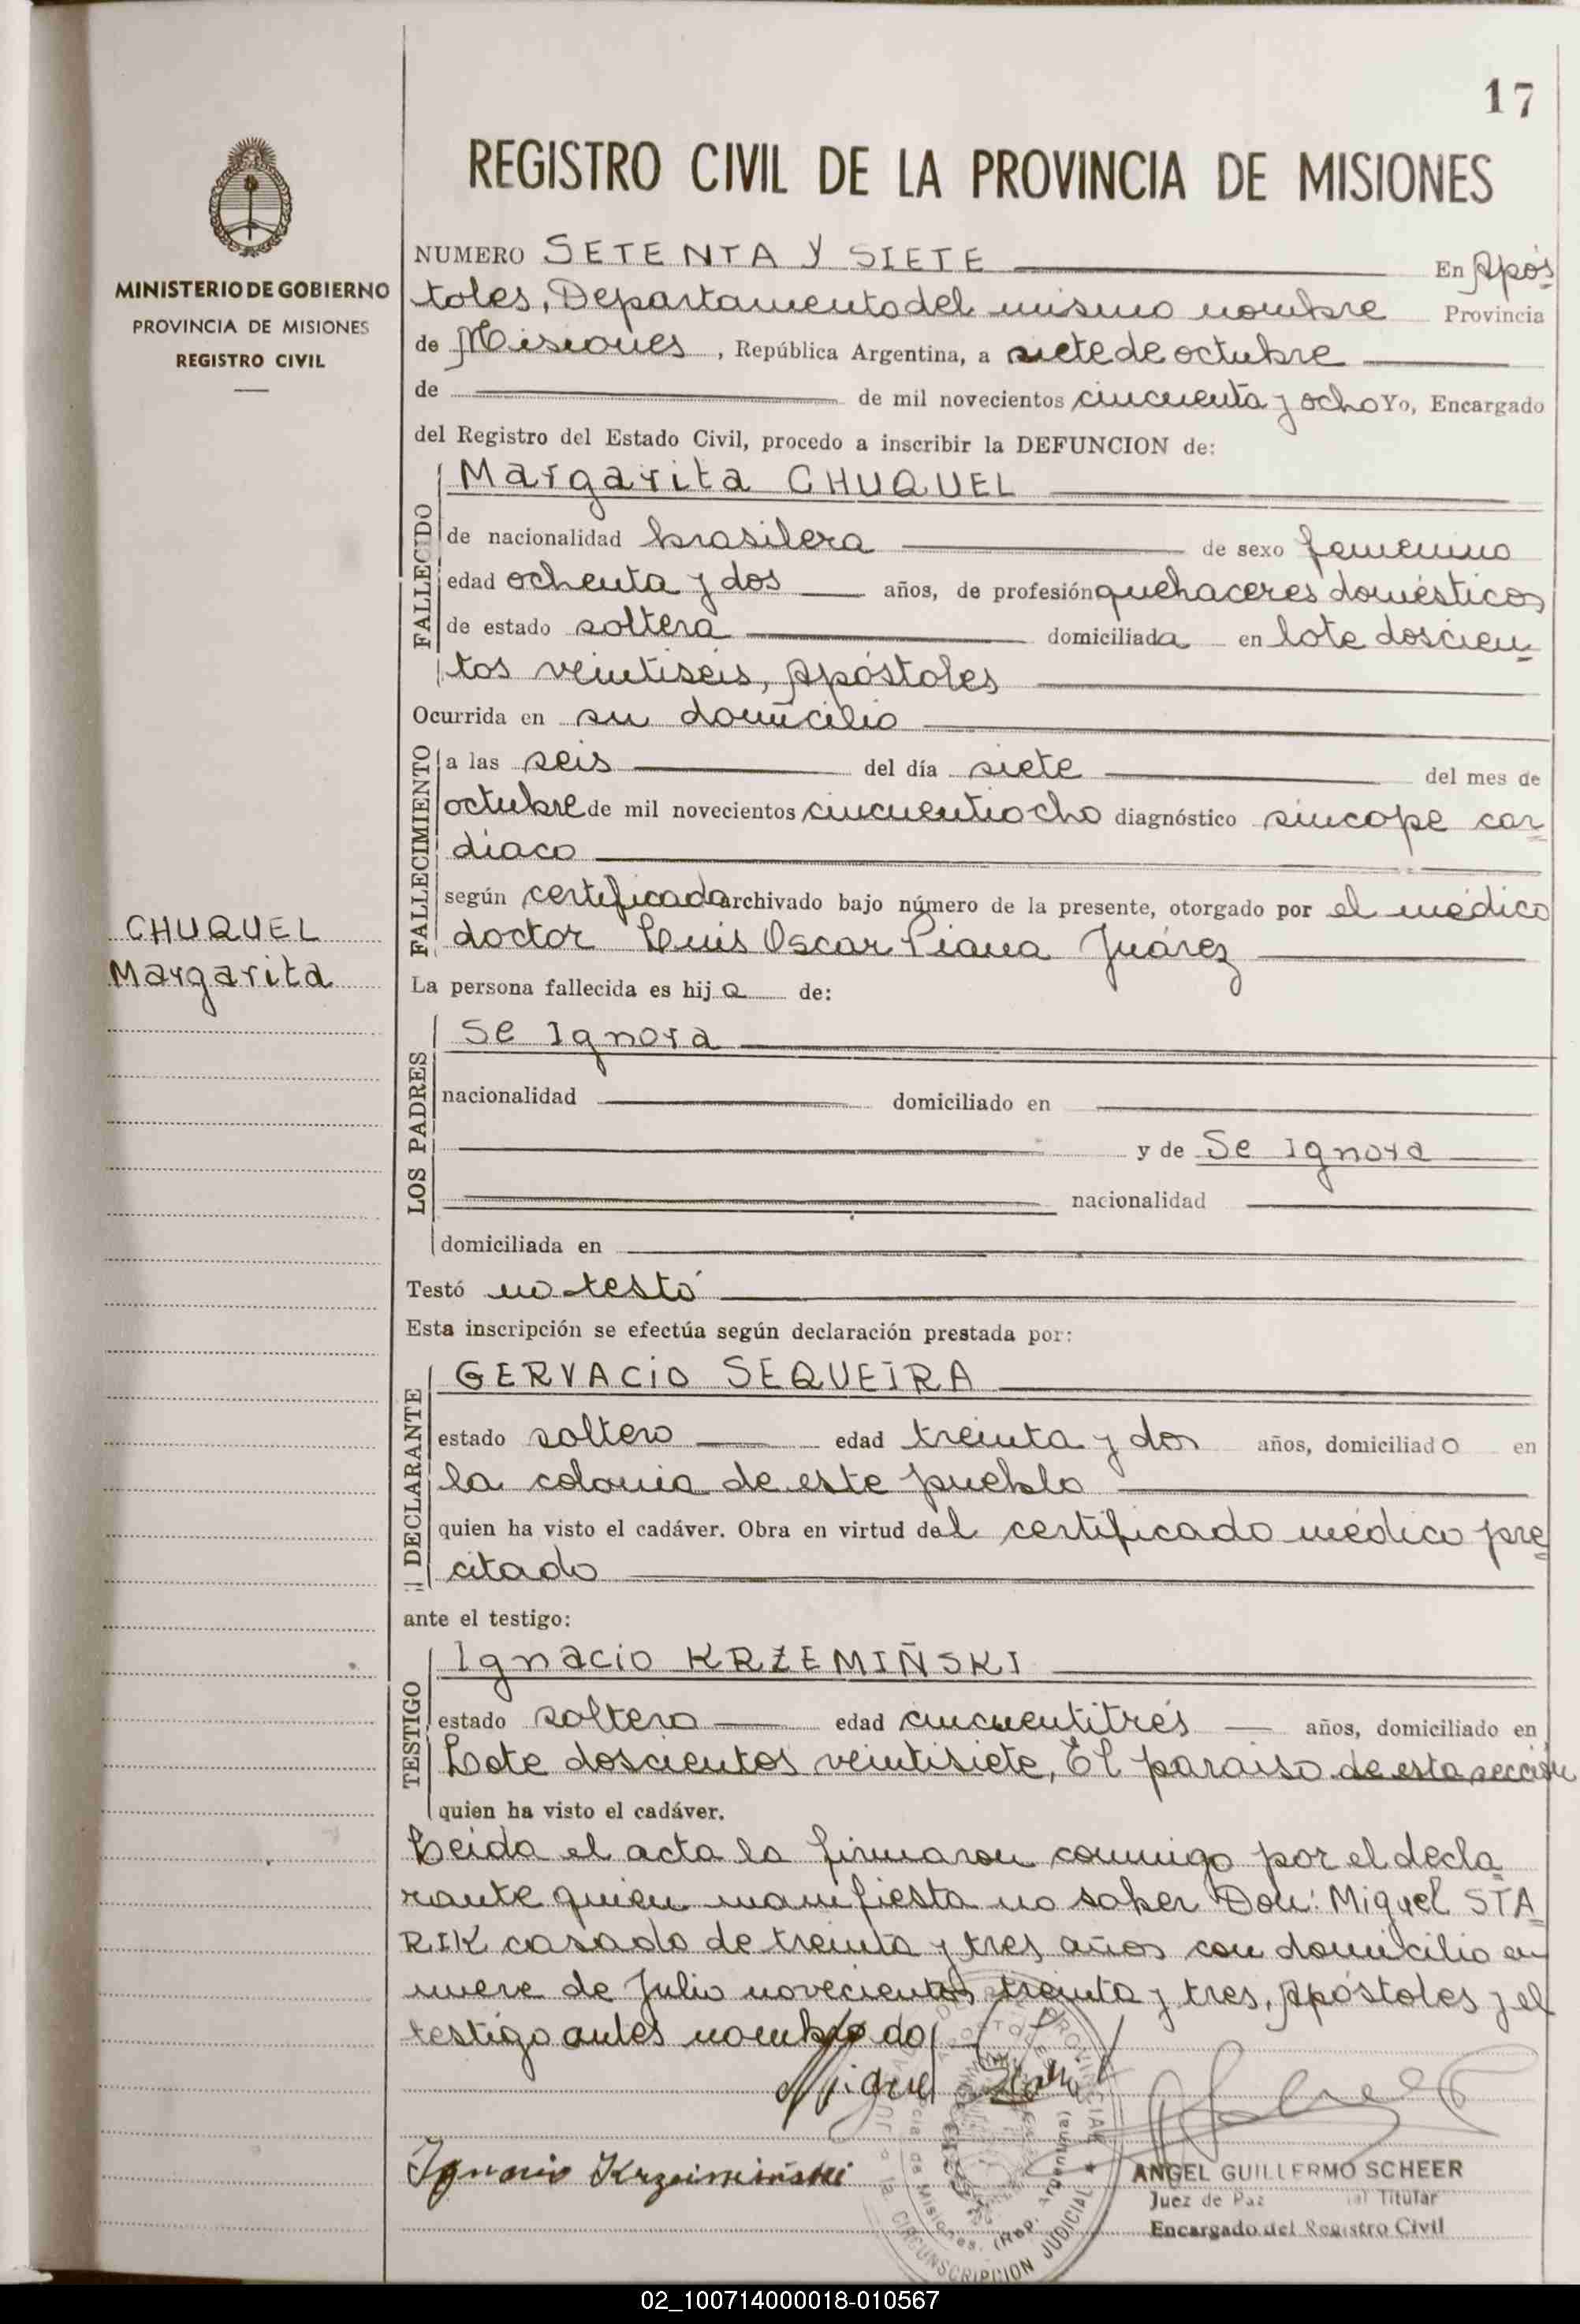 17
REGISTRO CIVIL DE LA PROVINCIA DE MISIONES
MINISTERIO DE GOBIERNO
PROVINCIA DE MISIONES
REGISTRO CIVIL
NUMERO SETENTA Y SIETE En Após
toles, Departamento del mismo nombre Provincia
de Misiones, República Argentina, a siete de octubre
de de mil novecientos cincuenta y ocho Yo, Encargado
del Registro del Estado Civil, procedo a inscribir la DEFUNCION de:
FALLECIDO
Margarita CHUQUEL
de nacionalidad brasilera de sexo femenino
edad ochenta y dos años, de profesión quehaceres domésticos
de estado soltera domiciliada en lote doscien
tos veintiseis, Apóstoles
Ocurrida en su domicilio
FALLECIMIENTO
a las seis del día siete del mes de
octubre de mil novecientos cincuentiocho diagnóstico síncope car
díaco
según certificado archivado bajo número de la presente, otorgado por el médico
doctor Luis Oscar Piana Juárez
CHUQUEL
Margarita
La persona fallecida es hija de:
LOS PADRES
Se Ignora
nacionalidad domiciliado en
y de Se Ignora
nacionalidad
domiciliada en
Testó no testó
Esta inscripción se efectúa según declaración prestada por:
DECLARANTE
GERVACIO SEQUEIRA
estado soltero edad treinta y dos años, domiciliado en
la colonia de este pueblo
quien ha visto el cadáver. Obra en virtud del certificado médico pre
citado
ante el testigo:
TESTIGO
Ignacio KRZEMIÑSKI
estado soltero edad cincuentitrés años, domiciliado en
Lote doscientos veintisiete, El paraiso de esta sección
quien ha visto el cadáver.
Leida el acta la firmaron conmigo por el decla
rante quien manifiesta no saber Don: Miguel STA
RIK casado de treinta y tres años con domicilio en
nueve de Julio novecientos treinta y tres, Apóstoles y el
testigo antes nombrado
Miguel
Ignacio Krzemiński
ANGEL GUILLERMO SCHEER
Juez de Paz Titular
Encargado del Registro Civil
CIRCUNSCRIPCION JUDICIAL
Misiones. (Rep. Argentina)
02_100714000018-010567